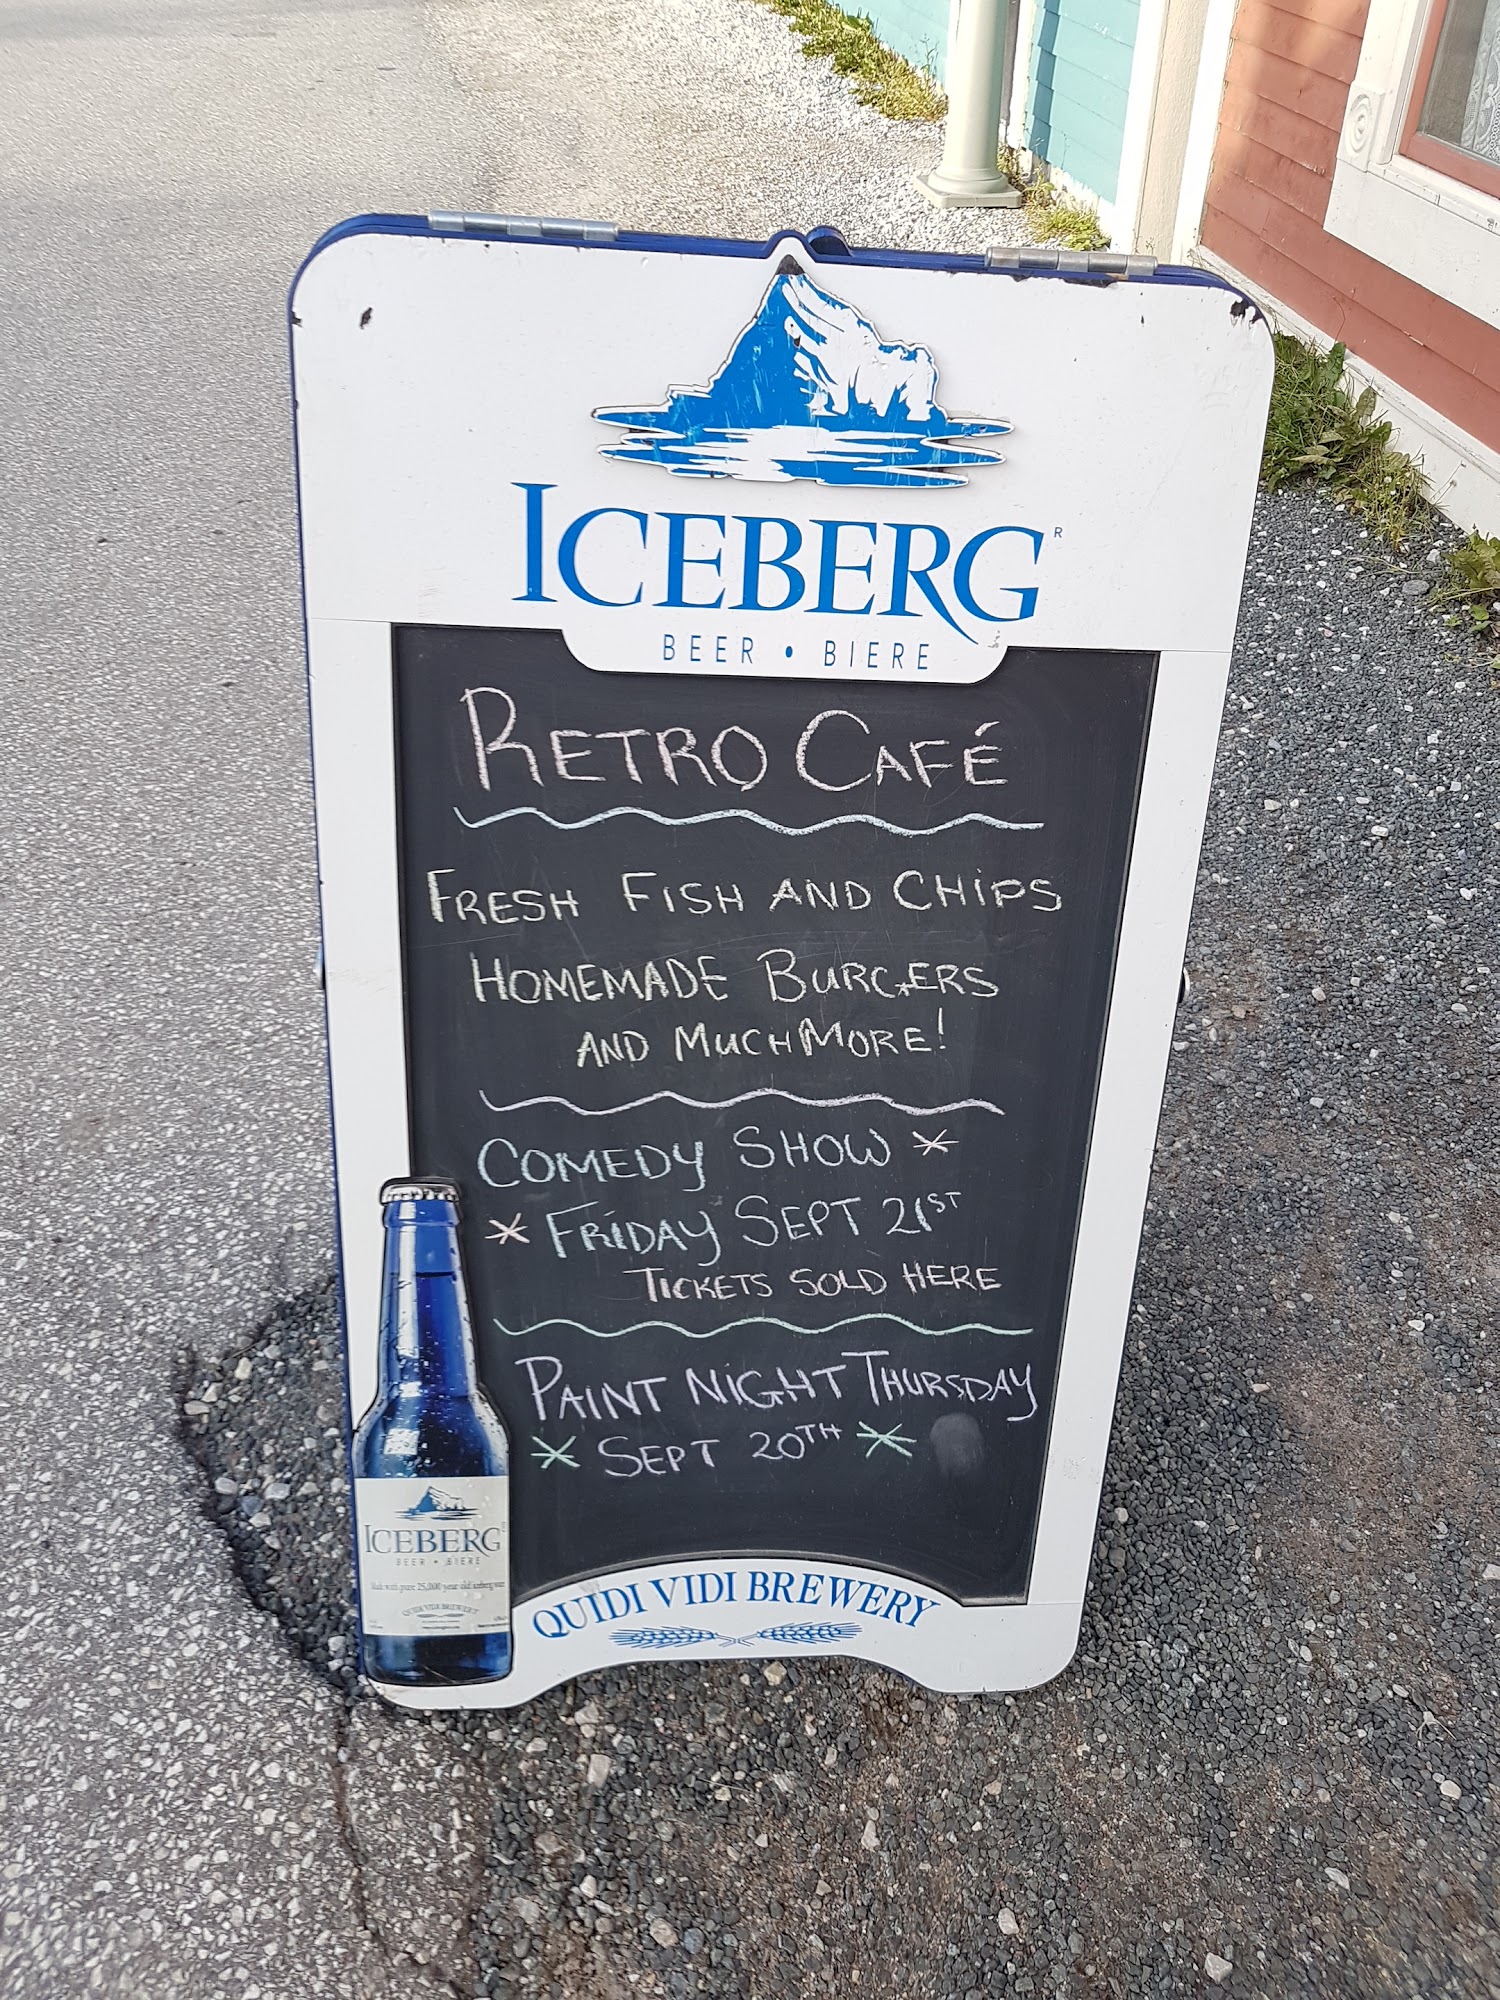 ICEBERG®
BEER • BIERE
RETRO CAFÉ
FRESH FISH AND CHIPS
HOMEMADE BURGERS
AND MUCH MORE!
COMEDY SHOW *
* FRIDAY SEPT 21ST
TICKETS SOLD HERE
PAINT NIGHT THURSDAY
* SEPT 20TH *
ICEBERG
BEER • BIERE
Made with pure 25,000 year old iceberg water
QUIDI VIDI BREWERY
QUIDI VIDI BREWERY